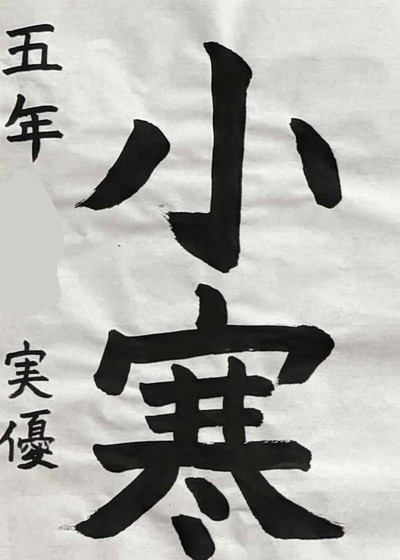 小寒
五年 実優